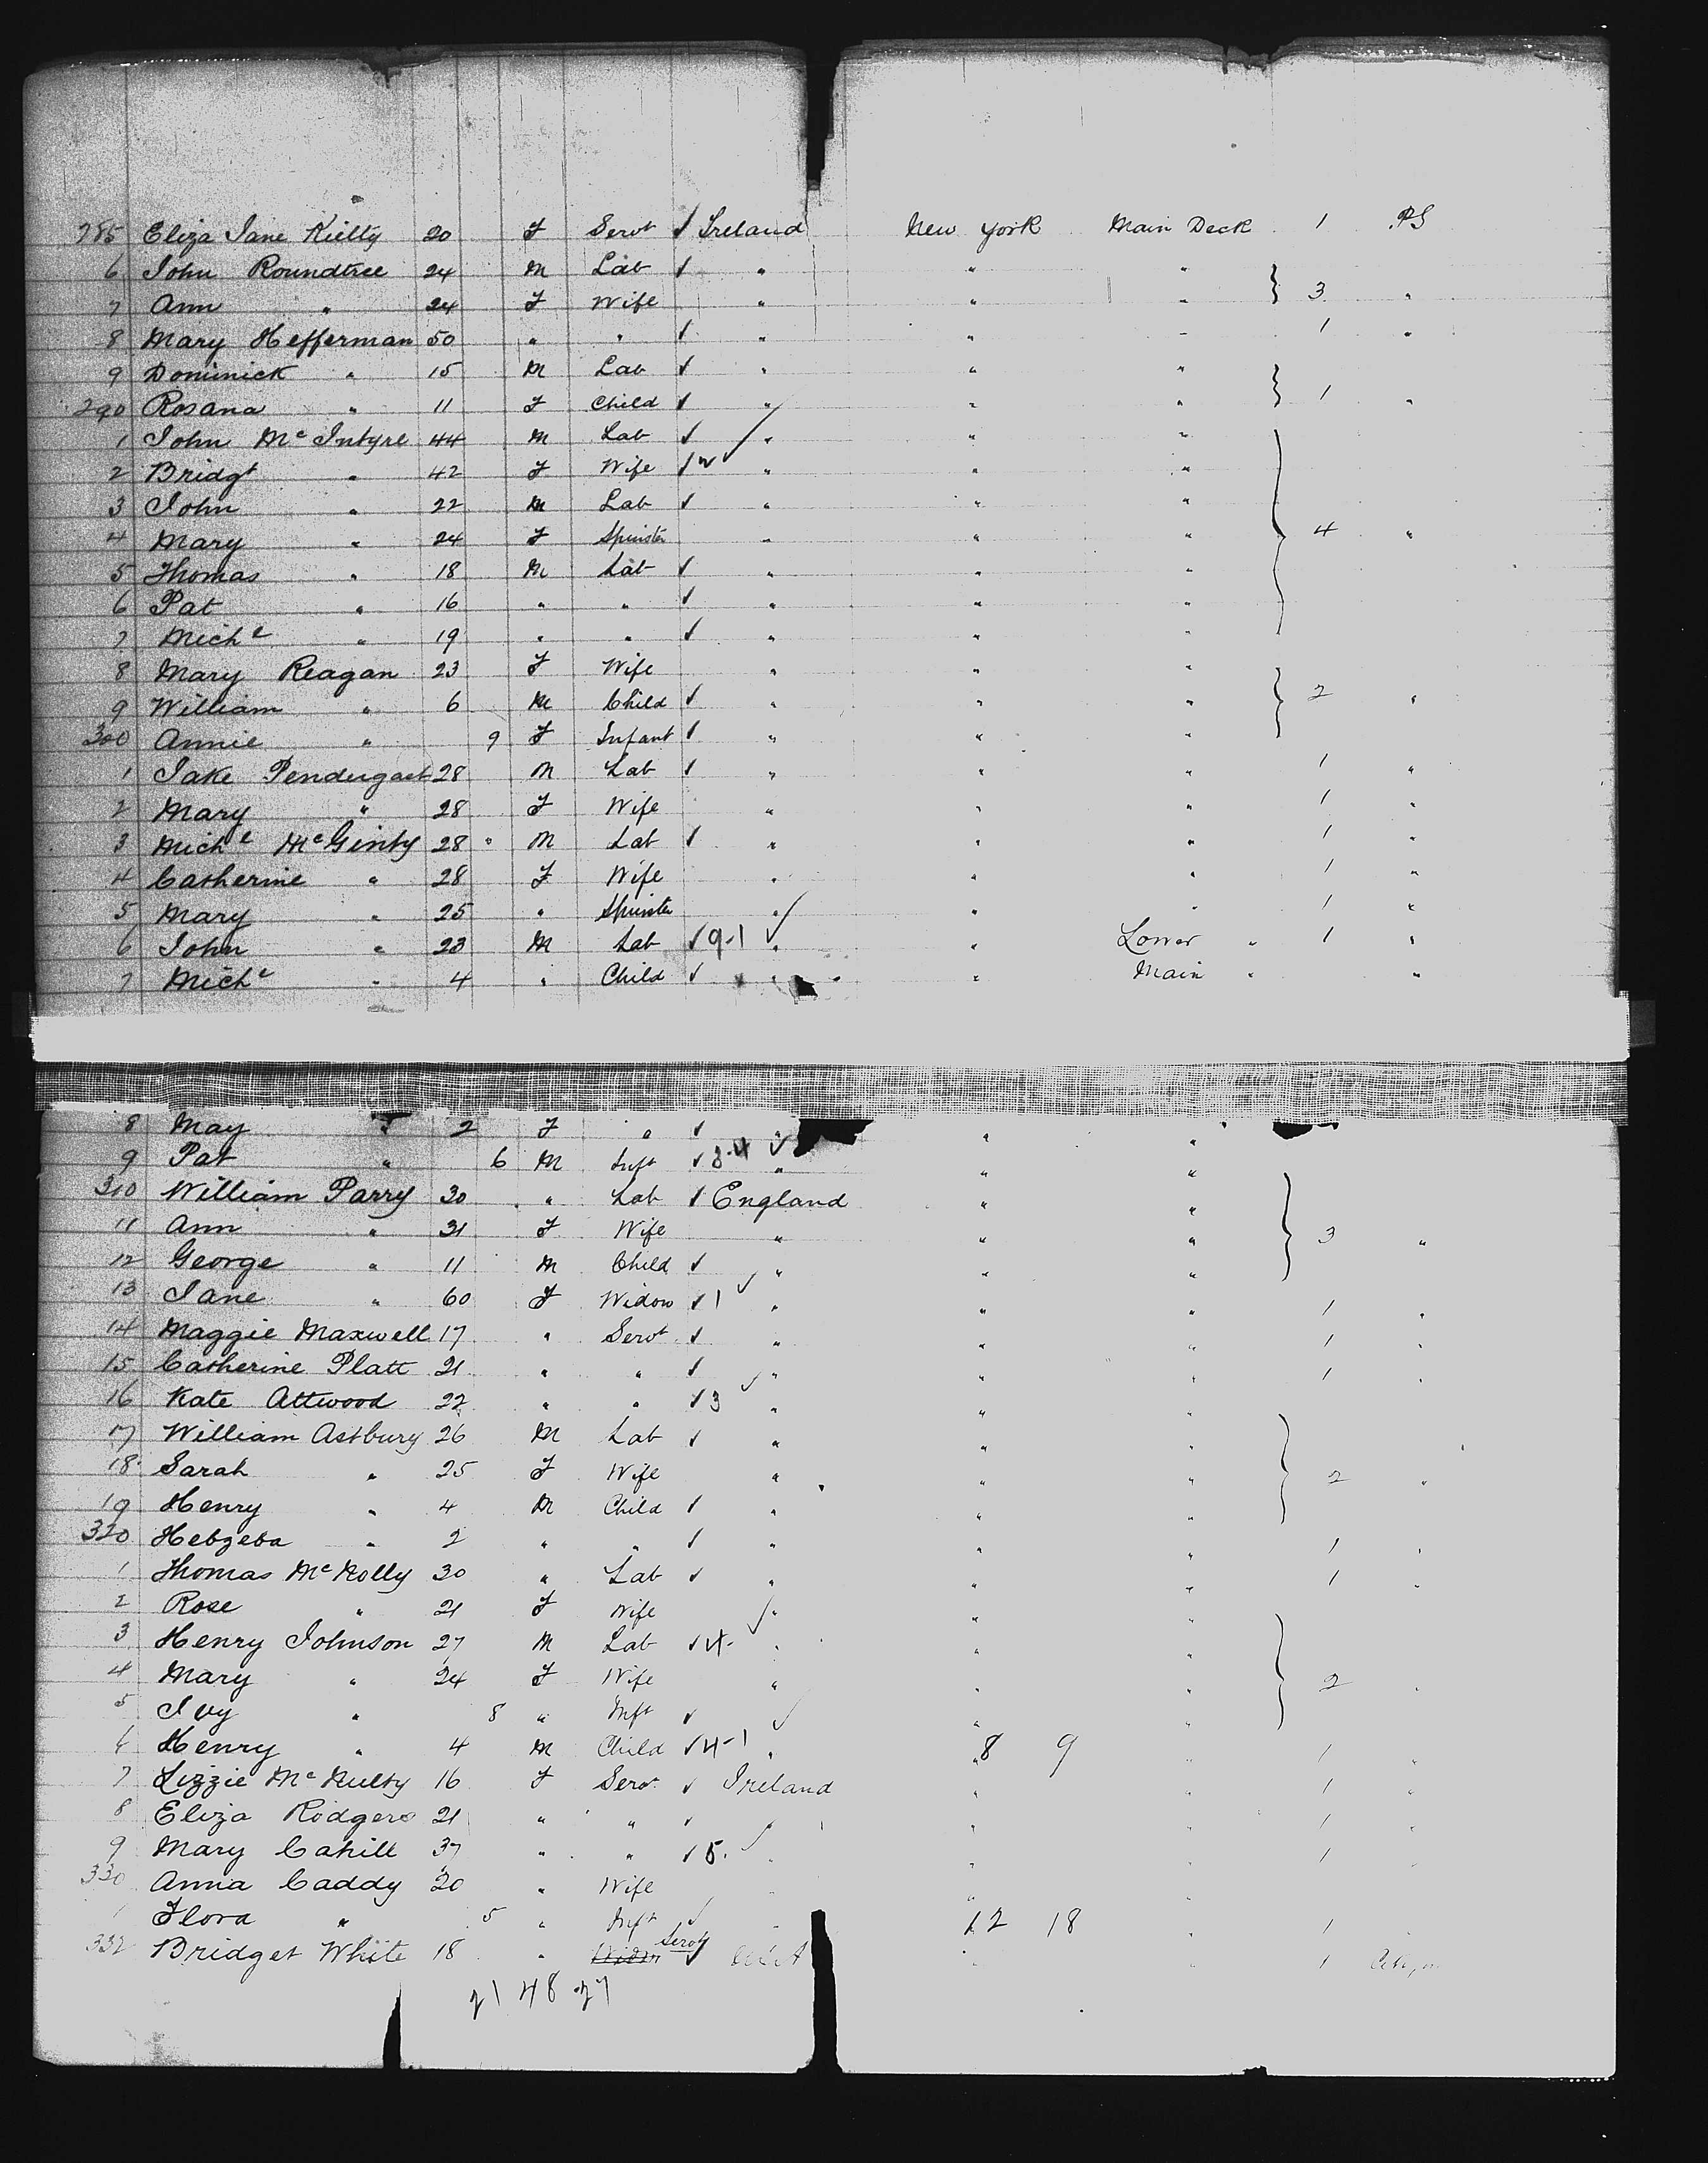 285 Eliza Jane Kielty 20 F Servt ✓ Ireland New York Main Deck 1 PS
6 John Roundtree 24 M Lab ✓ " " "
7 Ann " 24 F Wife " " " } 3 "
8 Mary Hefferman 50 " " ✓ " " " 1 "
9 Dominick " 15 M Lab ✓ " " "
290 Rosana " 11 F Child ✓ " " " } 1 "
1 John McIntyre 44 M Lab ✓ " " "
2 Bridgt " 42 F Wife ✓ " " "
3 John " 22 M Lab ✓ " " "
4 Mary " 24 F Spinster " " " } 4 "
5 Thomas " 18 M Lab ✓ " " "
6 Pat " 16 " " ✓ " " "
7 Michl " 19 " " ✓ " " "
8 Mary Reagan 23 F Wife " " "
9 William " 6 M Child ✓ " " " } 2 "
300 Annie " 9 F Infant ✓ " " "
1 Jake Pendergast 28 M Lab ✓ " " " 1 "
2 Mary " 28 F Wife " " " 1 "
3 Michl McGinty 28 " M Lab ✓ " " " 1 "
4 Catherine " 28 F Wife " " " 1 "
5 Mary " 25 " Spinster " ✓ " " 1 "
6 John " 23 M Lab ✓ 9-1 ✓ " " Lower " 1 "
7 Michl " 4 " Child ✓ " " Main " "
8 May " 2 F " ✓ " " "
9 Pat " 6 M Inft ✓ 3-4 ✓ " " "
310 William Parry 30 " Lab ✓ England " "
11 Ann " 31 F Wife " " " } 3 "
12 George " 11 M Child ✓ " " "
13 Jane " 60 F Widow ✓ 1 ✓ " " " 1 "
14 Maggie Maxwell 17 " Servt ✓ " " " 1 "
15 Catherine Platt 21 " " ✓ " " " 1 "
16 Kate Attwood 22 " " ✓ 3 ✓ " "
17 William Astbury 26 M Lab ✓ " " "
18 Sarah " 25 F Wife " " " } 2 "
19 Henry " 4 M Child ✓ " " "
320 Hebzeba " 2 " " ✓ " " " 1 "
1 Thomas McNolly 30 " Lab ✓ " " " 1 "
2 Rose " 21 F Wife ✓ " " "
3 Henry Johnson 27 M Lab ✓ 4- " " "
4 Mary " 24 F Wife " " " } 2 "
5 Ivy " 8 " Inft ✓ ✓ " "
6 Henry " 4 M Child ✓ 4-1 " " 8 9 " 1 "
7 Lizzie McNulty 16 F Servt ✓ Ireland " " 1 "
8 Eliza Rodgers 21 " " ✓ " " " 1 "
9 Mary Cahill 37 " " ✓ 5. ✓ " " 1 "
330 Anna Caddy 20 " Wife " "
1 Flora " 5 " Inft ✓ " 12 18 " 1 "
332 Bridget White 18 " Widow Servt ✓ USA " " 1
21 48 27